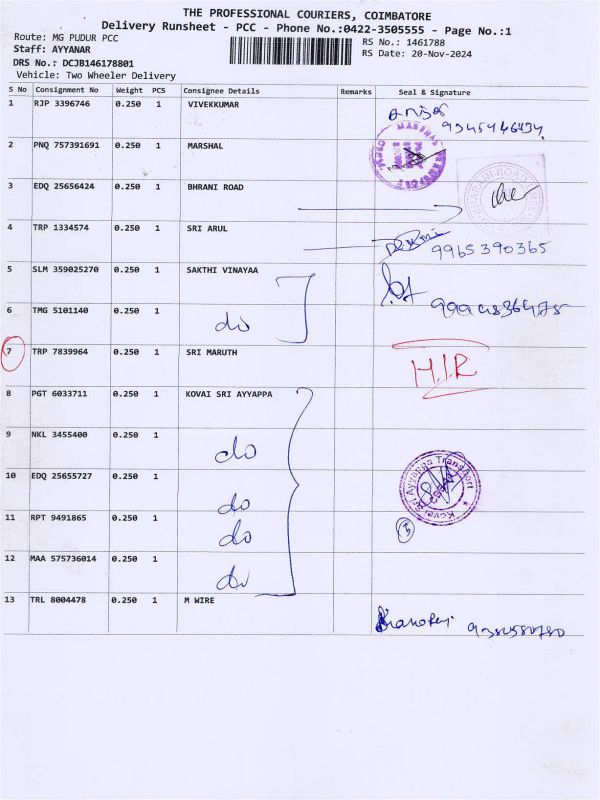 THE PROFESSIONAL COURIERS, COIMBATORE
Delivery Runsheet - PCC - Phone No.:0422-3505555 - Page No.:1
Route: MG PUDUR PCC
RS No.: 1461788
Staff: AYYANAR
RS Date: 20-Nov-2024
DRS No.: DCJB146178801
Vehicle: Two Wheeler Delivery
S No Consignment No Weight PCS Consignee Details Remarks Seal & Signature
1 RJP 3396746 0.250 1 VIVEKKUMAR
2 PNQ 757391691 0.250 1 MARSHAL
MARSHAL
3 EDQ 25656424 0.250 1 BHRANI ROAD
4 TRP 1334574 0.250 1 SRI ARUL
9965390365
5 SLM 359025270 0.250 1 SAKTHI VINAYAA
6 TMG 5101140 0.250 1
do
7 TRP 7839964 0.250 1 SRI MARUTH
H.I.R
8 PGT 6033711 0.250 1 KOVAI SRI AYYAPPA
9 NKL 3455400 0.250 1
do
Kovai Sri Ayyappa Transport
10 EDQ 25655727 0.250 1
do
11 RPT 9491865 0.250 1
do
12 MAA 575736014 0.250 1
do
13 TRL 8004478 0.250 1 M WIRE